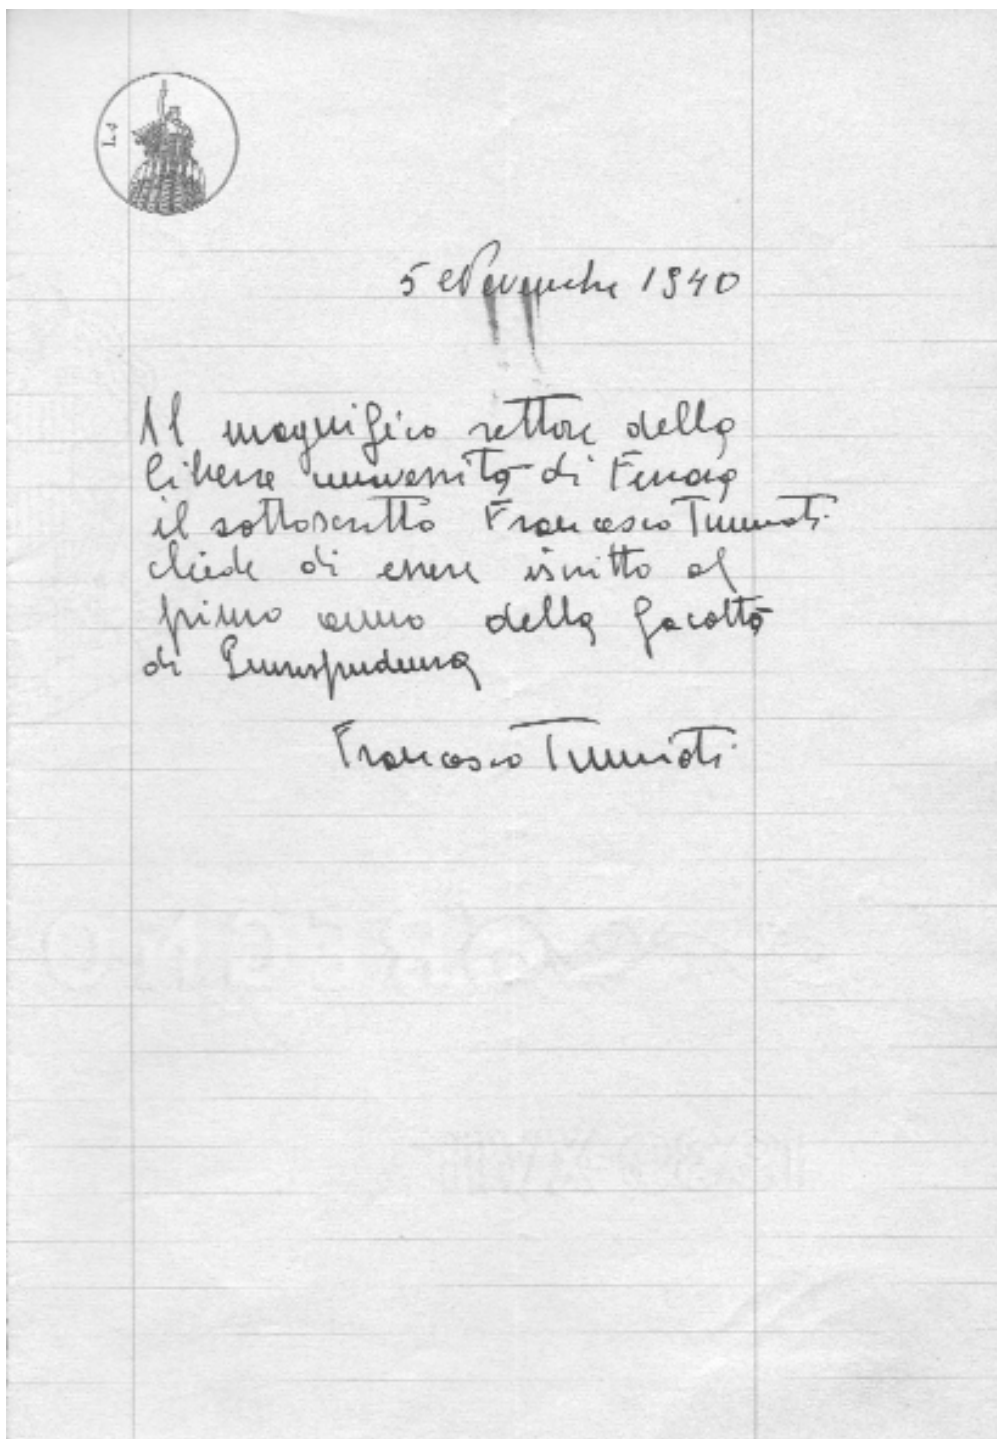 L.4
5 Novembre 1940
Al magnifico rettore della
libera università di Ferrara
il sottoscritto Francesco Tumiati
chiede di essere iscritto al
primo anno della facoltà
di Giurisprudenza
Francesco Tumiati